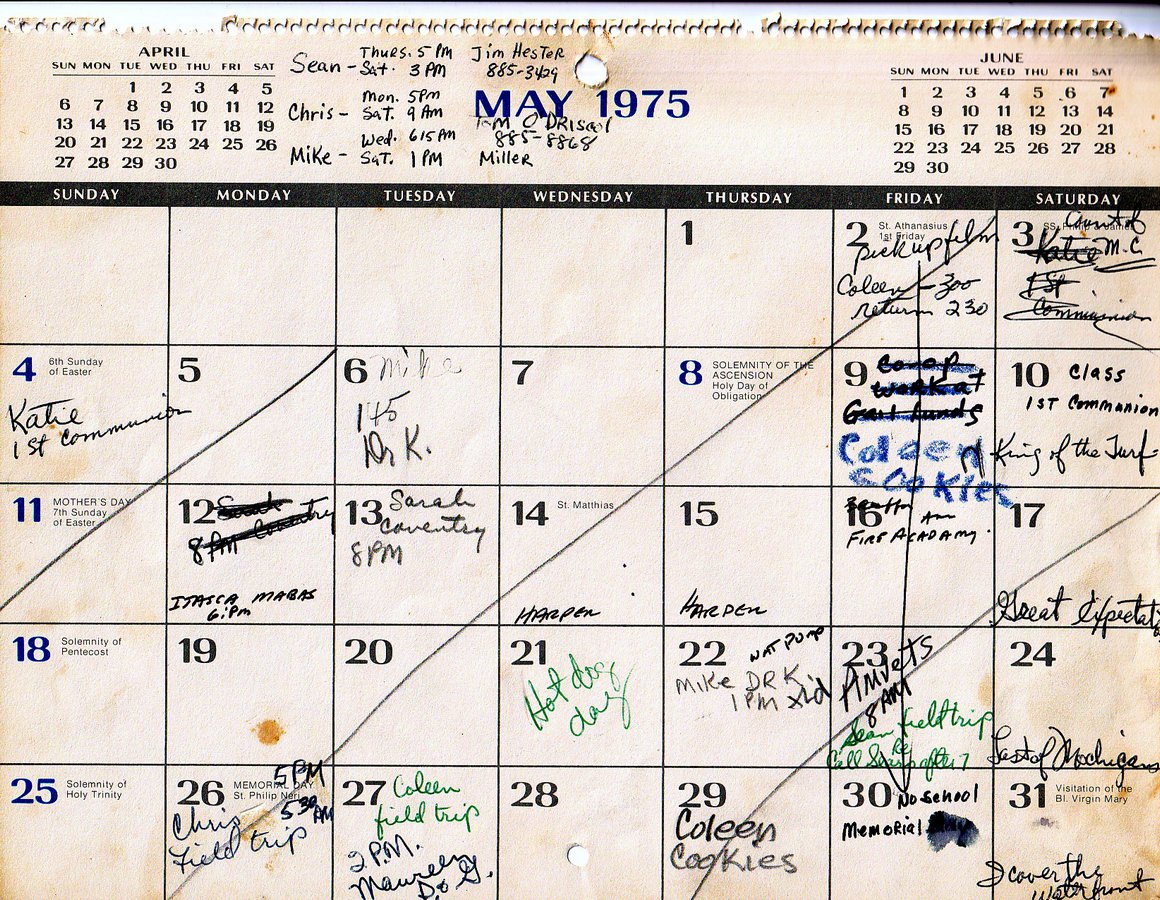 APRIL
SUN MON TUE WED THU FRI SAT
1 2 3 4 5
6 7 8 9 10 11 12
13 14 15 16 17 18 19
20 21 22 23 24 25 26
27 28 29 30
Sean - Thurs. 5 PM
Sat. 3 PM
Chris - Mon. 5pm
Sat. 9 Am
Mike - Wed. 615 Pm
Sat. 1 PM
Jim Hester
885-3429
MAY 1975
Tom O'Driscol
885-8868
Miller
JUNE
SUN MON TUE WED THU FRI SAT
1 2 3 4 5 6 7
8 9 10 11 12 13 14
15 16 17 18 19 20 21
22 23 24 25 26 27 28
29 30
SUNDAY MONDAY TUESDAY WEDNESDAY THURSDAY FRIDAY SATURDAY
1
2 St. Athanasius
1st Friday
pick up film
Coleen - 300
return 230
3
Count of
Katie M.C.
1st
Communion
4 6th Sunday
of Easter
Katie
1st Communion
5
6 Mike
145
Dr K.
7
8 SOLEMNITY OF THE
ASCENSION
Holy Day of
Obligation
9 Co-op
work at
Coleen
Cookies
10 Class
1st Communion
King of the Turf
11 MOTHER'S DAY
7th Sunday
of Easter
12
8 PM Coventry
ITASCA MABAS
6:PM
13 Sarah
Coventry
8 PM
14 St. Matthias
HARPER
15
HARPER
16
Am
FIRE ACADEMY
17
Great Expectati
18 Solemnity of
Pentecost
19
20
21
Hot dog
day
22
Mike DR K.
1 PM
23 Amvets
8 AM
Sean field trip
Call Sears after 7
24
Last of Mochigans
25 Solemnity of
Holy Trinity
26 MEMORIAL DAY
St. Philip Neri
5 PM
530 AM
Chris
Field trip
27 Coleen
field trip
2 P.M.
Maureen
D. G.
28
29
Coleen
Cookies
30 No school
Memorial Day
31 Visitation of the
Bl. Virgin Mary
I cover the
Waterfront